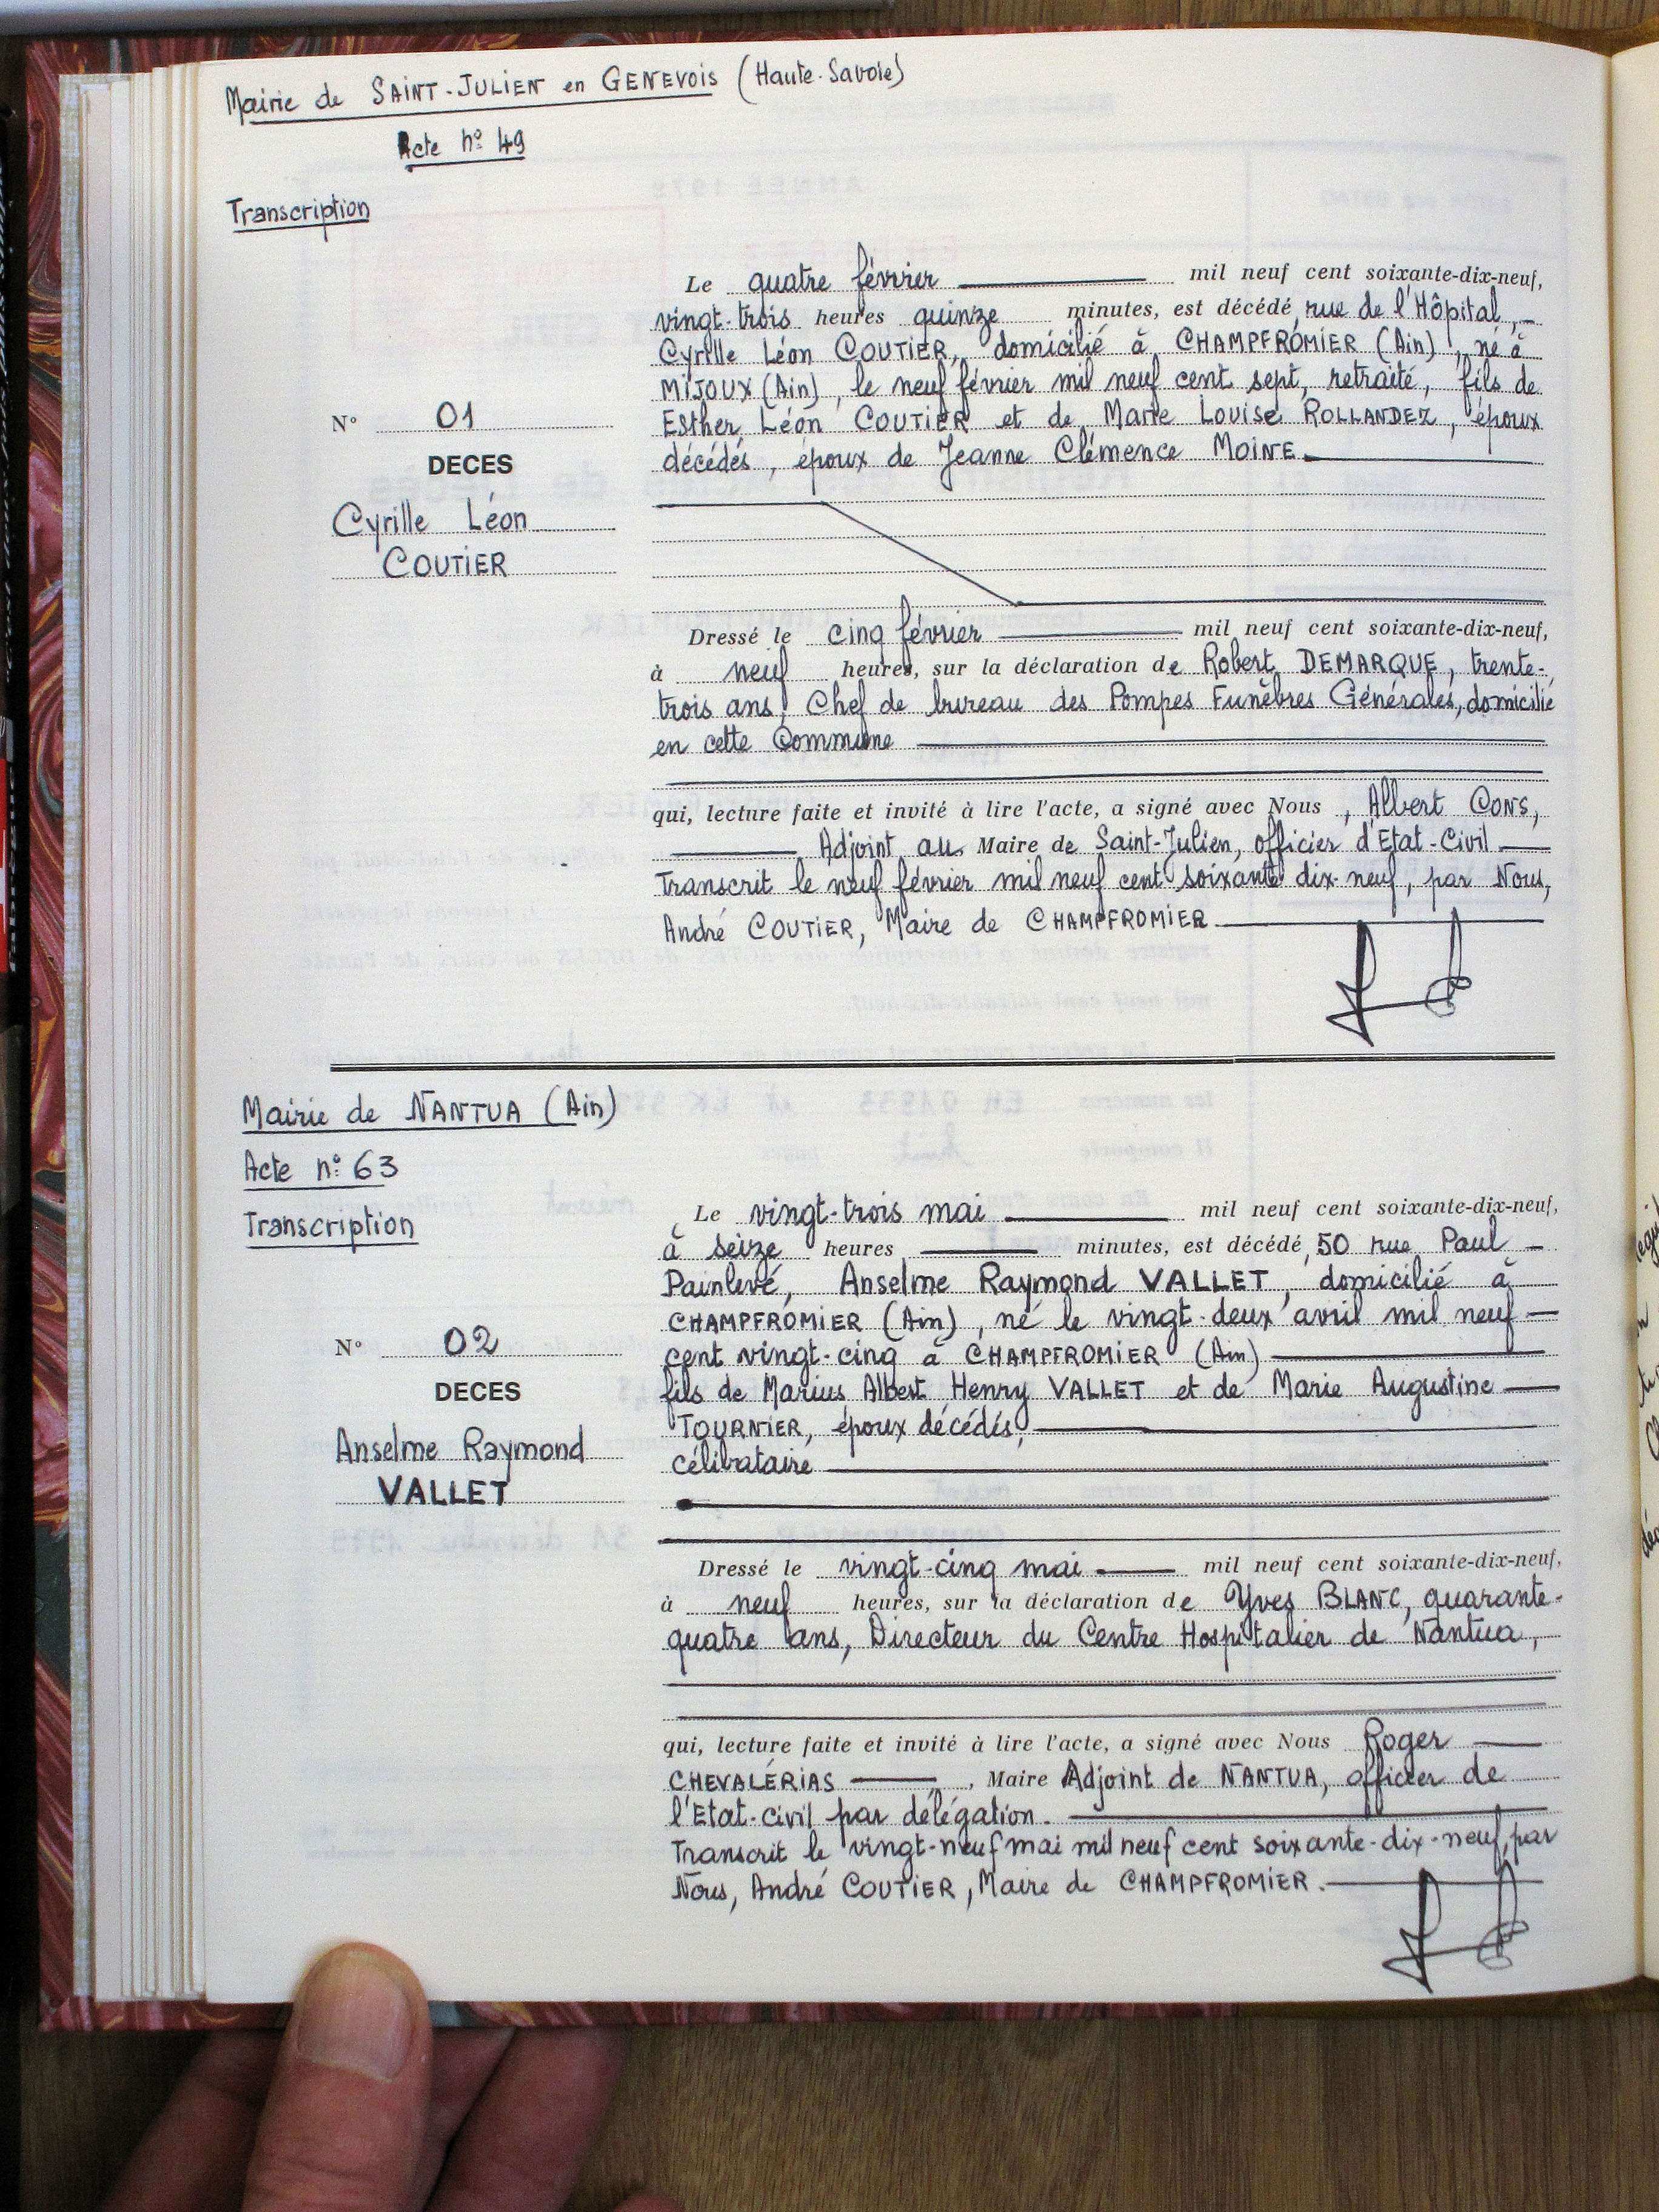 Mairie de SAINT-JULIEN en GENEVOIS (Haute-Savoie)
Acte n° 49
Transcription
Le quatre février mil neuf cent soixante-dix-neuf,
vingt-trois heures quinze minutes, est décédé, rue de l'Hôpital,
Cyrille Léon COUTIER, domicilié à CHAMPFROMIER (Ain), né à
MIJOUX (Ain), le neuf février mil neuf cent sept, retraité, fils de
Esther Léon COUTIER et de Marie Louise ROLLANDEZ, époux
décédés, époux de Jeanne Clémence MOINE.
N° 01
DECES
Cyrille Léon
COUTIER
Dressé le cinq février mil neuf cent soixante-dix-neuf,
à neuf heures, sur la déclaration de Robert DEMARQUE, trente-
trois ans, Chef de bureau des Pompes Funèbres Générales, domicilié
en cette Commune
qui, lecture faite et invité à lire l'acte, a signé avec Nous, Albert CONS,
Adjoint au Maire de Saint-Julien, officier d'Etat-Civil.
Transcrit le neuf février mil neuf cent soixante dix-neuf, par Nous,
André COUTIER, Maire de CHAMPFROMIER
Mairie de NANTUA (Ain)
Acte n° 63
Transcription
Le vingt-trois mai mil neuf cent soixante-dix-neuf,
à seize heures minutes, est décédé, 50 rue Paul
Painlevé, Anselme Raymond VALLET, domicilié à
CHAMPFROMIER (Ain), né le vingt-deux avril mil neuf
cent vingt-cinq à CHAMPFROMIER (Ain)
fils de Marius Albert Henry VALLET et de Marie Augustine
TOURNIER, époux décédés,
célibataire
N° 02
DECES
Anselme Raymond
VALLET
Dressé le vingt-cinq mai mil neuf cent soixante-dix-neuf,
à neuf heures, sur la déclaration de Yves BLANC, quarante-
quatre ans, Directeur du Centre Hospitalier de Nantua,
qui, lecture faite et invité à lire l'acte, a signé avec Nous Roger
CHEVALÉRIAS, Maire Adjoint de NANTUA, officier de
l'Etat-civil par délégation.
Transcrit le vingt-neuf mai mil neuf cent soixante-dix-neuf, par
Nous, André COUTIER, Maire de CHAMPFROMIER.